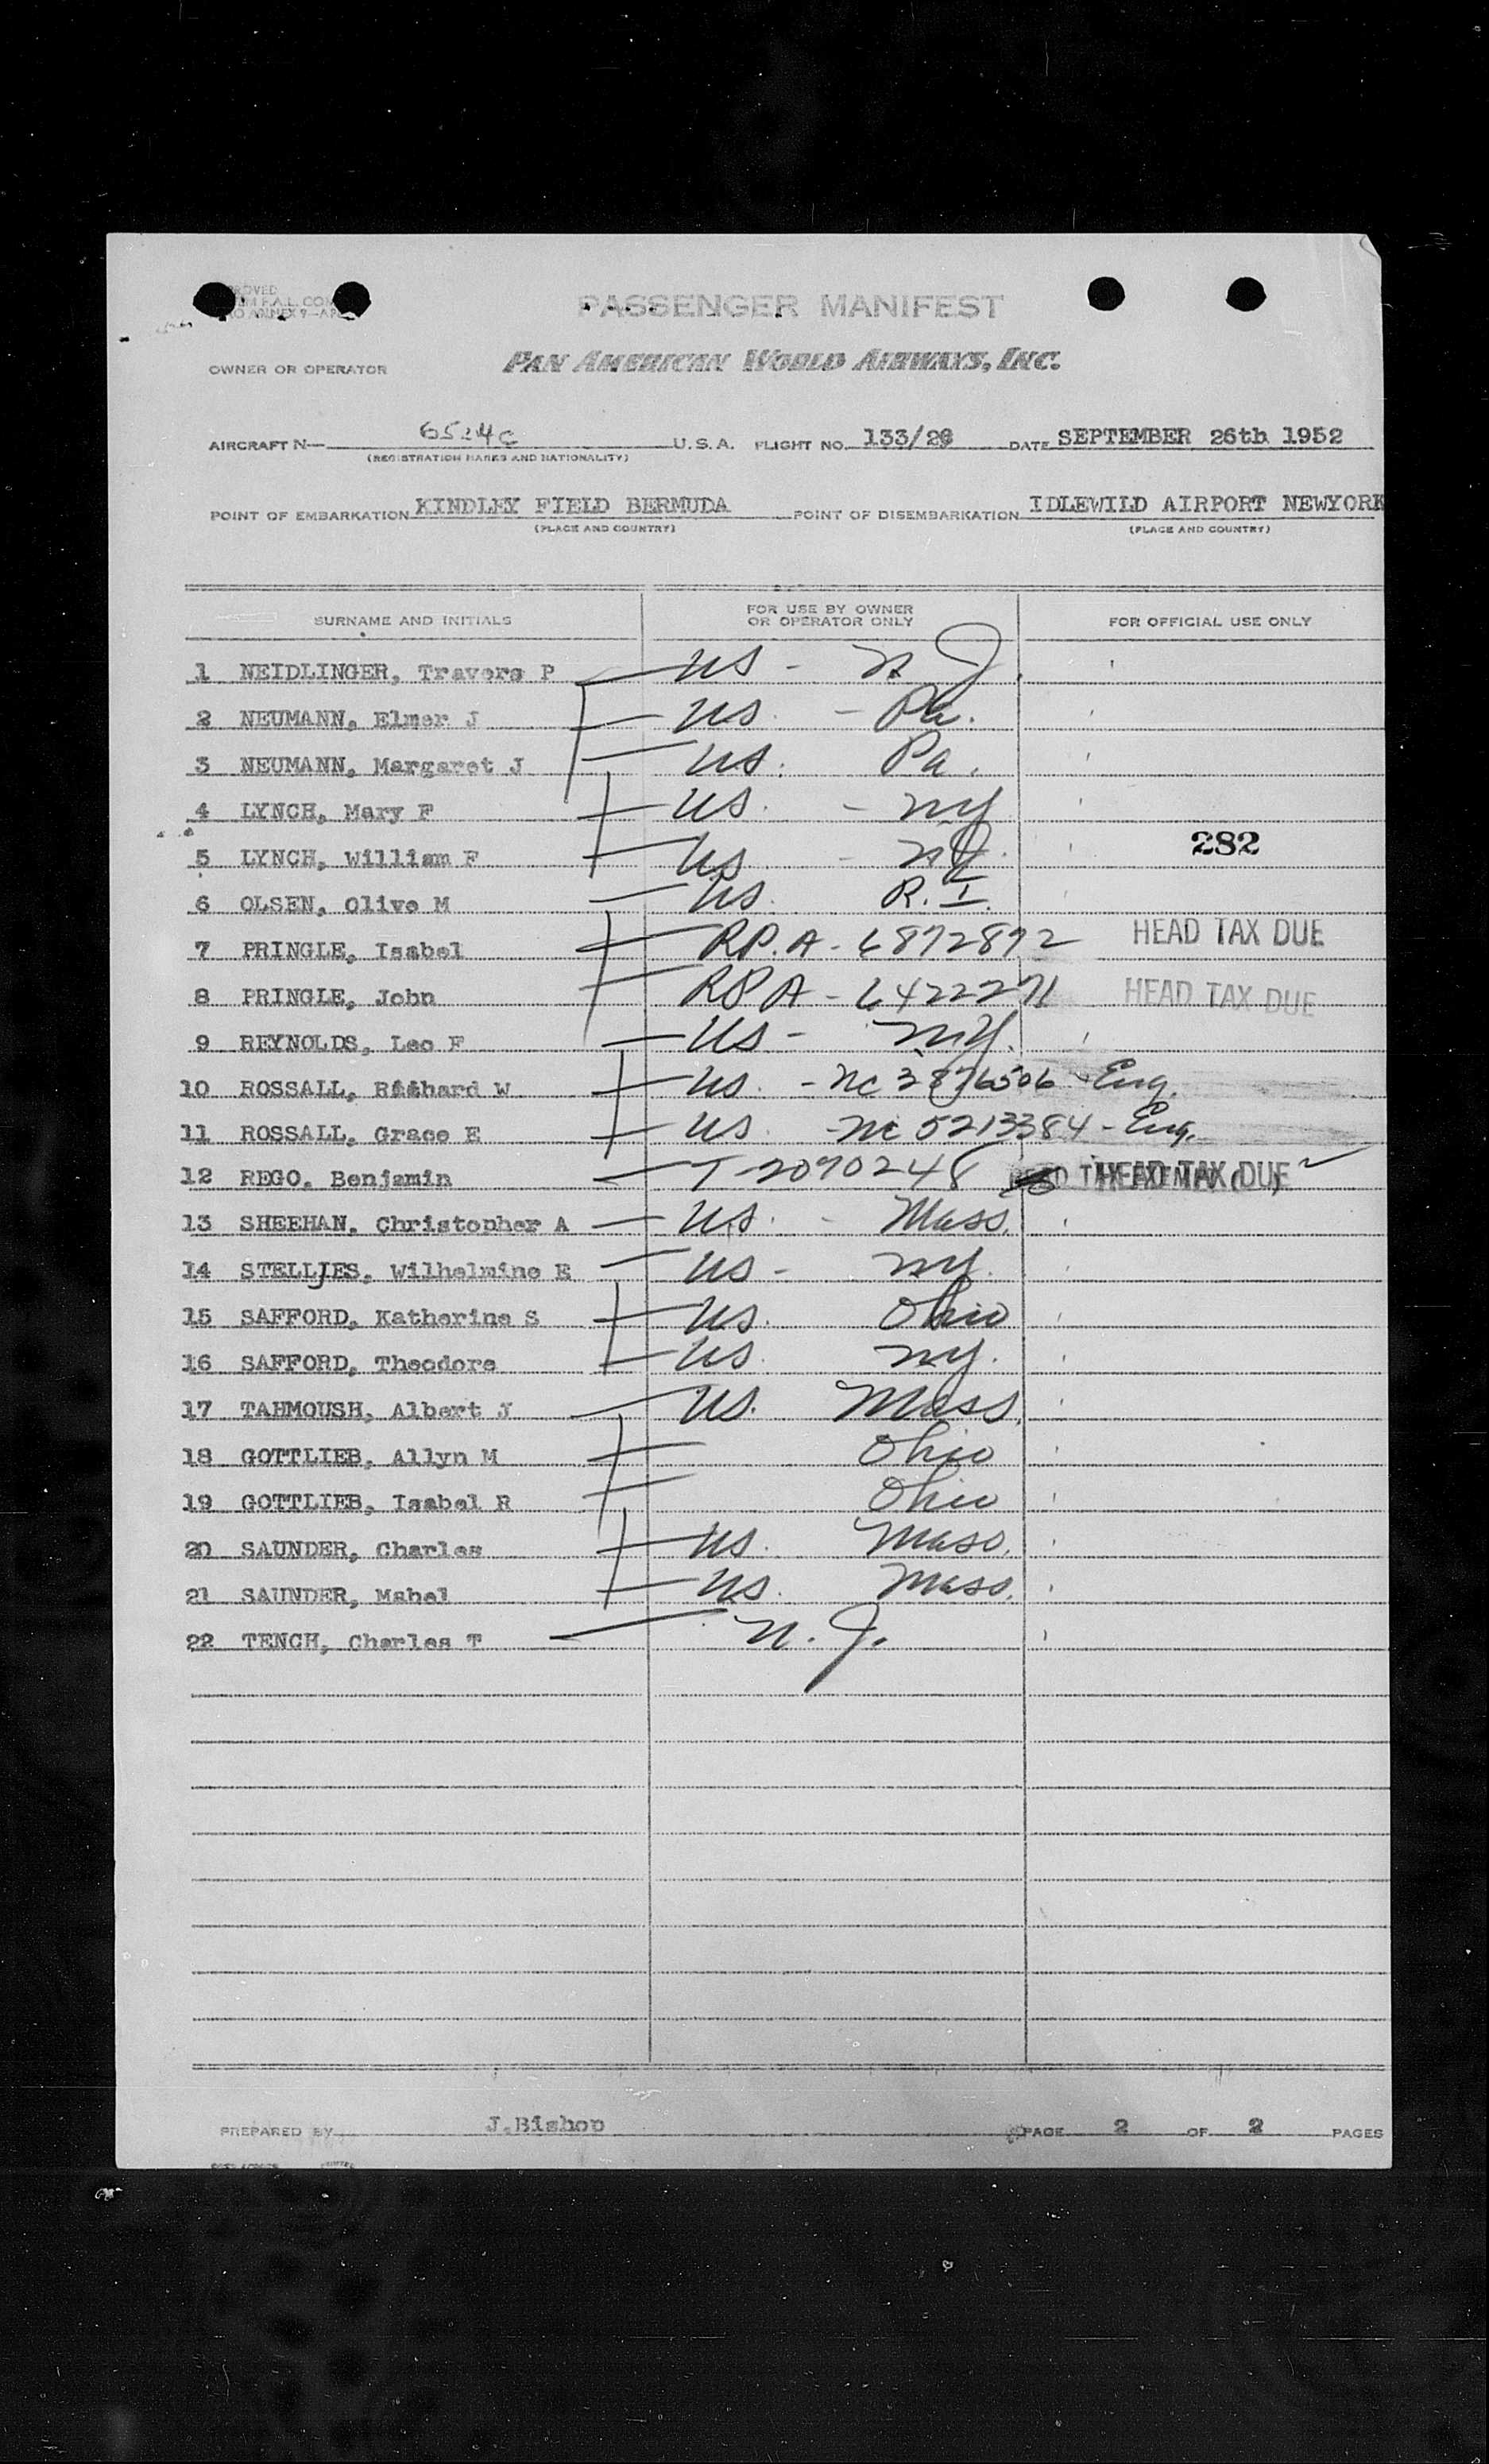 PASSENGER MANIFEST
OWNER OR OPERATOR PAN AMERICAN WORLD AIRWAYS, INC.
AIRCRAFT N— U.S.A. FLIGHT NO. 133/26 DATE SEPTEMBER 26th 1952
(REGISTRATION MARKS AND NATIONALITY)
POINT OF EMBARKATION KINDLEY FIELD BERMUDA POINT OF DISEMBARKATION IDLEWILD AIRPORT NEWYORK
(PLACE AND COUNTRY) (PLACE AND COUNTRY)
SURNAME AND INITIALS FOR USE BY OWNER OR OPERATOR ONLY FOR OFFICIAL USE ONLY
1 NEIDLINGER, Travers P US - NJ
2 NEUMANN, Elmer J US. - Pa.
3 NEUMANN, Margaret J US. Pa.
4 LYNCH, Mary F US. - NY
5 LYNCH, William F US - NY. 282
6 OLSEN, Olive M US. R.I.
7 PRINGLE, Isabel RP.A - 6872872 HEAD TAX DUE
8 PRINGLE, John RPA - 6422271 HEAD TAX DUE
9 REYNOLDS, Leo F US - NY.
10 ROSSALL, Riithard W US. - NC 2876506 - Eng.
11 ROSSALL, Grace E US. - NC 5213384 - Eng.
12 REGO, Benjamin T-2070248 HEAD TAX DUE
13 SHEEHAN, Christopher A US. - Mass.
14 STELLJES, Wilhelmine E US - NY.
15 SAFFORD, Katherine S US. Ohio
16 SAFFORD, Theodore US. NY.
17 TAHMOUSH, Albert J US. Mass.
18 GOTTLIEB, Allyn M Ohio
19 GOTTLIEB, Isabel R Ohio
20 SAUNDER, Charles US. Mass.
21 SAUNDER, Mabel US. Mass.
22 TENCH, Charles T N.J.
PREPARED BY J.Bishop PAGE 2 OF 2 PAGES